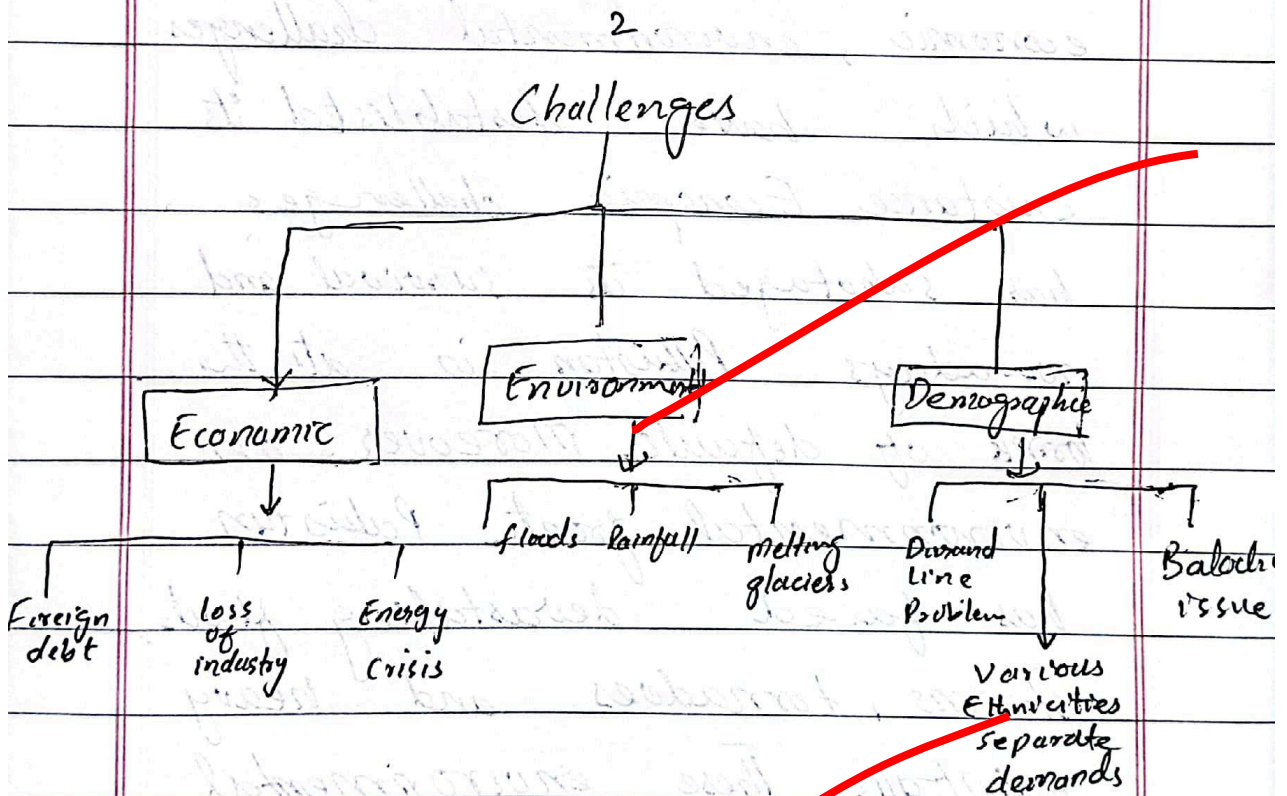 2
Challenges
Economic
Environment
Demographic
Foreign
debt
loss
of
industry
Energy
Crisis
floods Rainfall
melting
glaciers
Durand
Line
Problem
Various
Ethnicities
separate
demands
issue